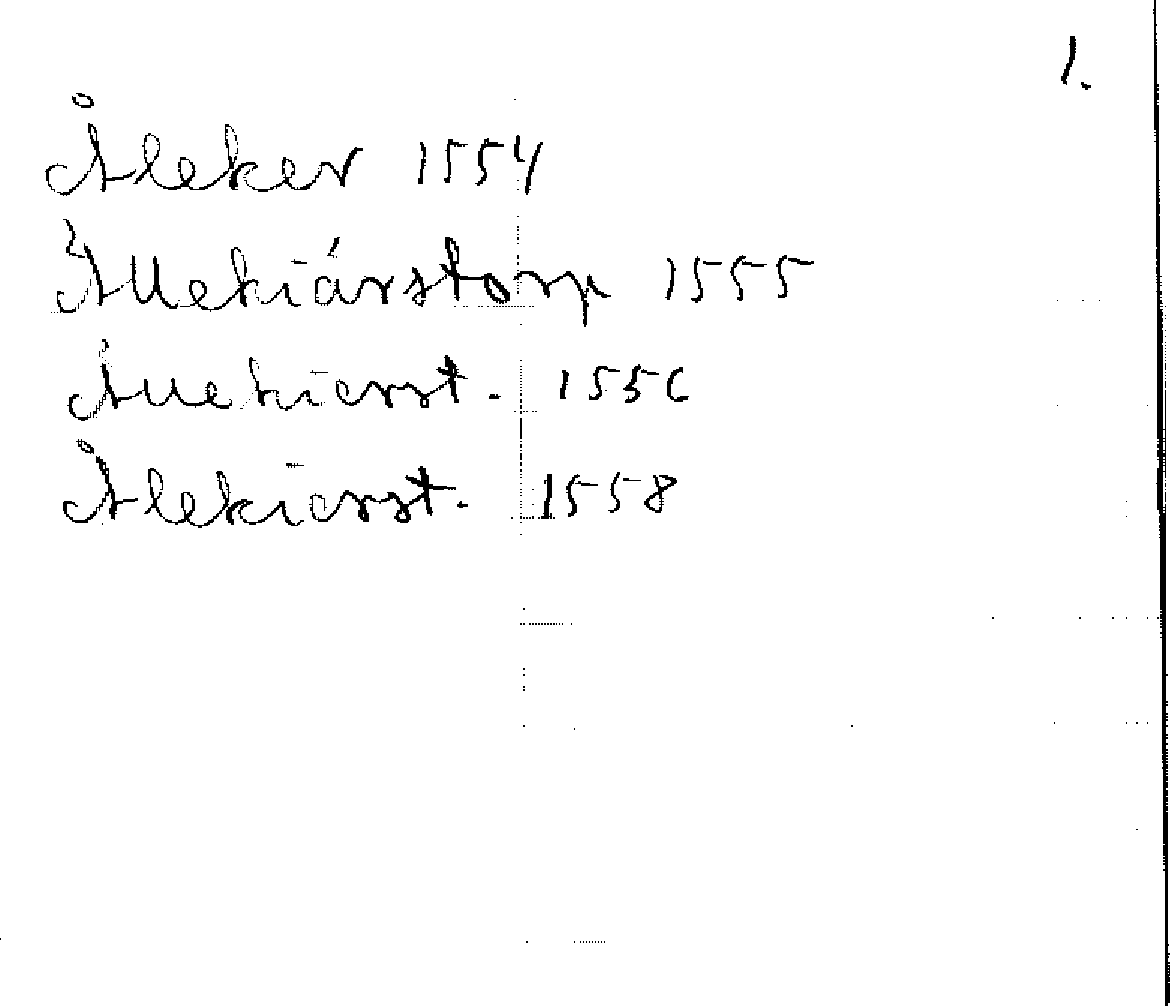 1.
Åleker 1554
Ållekiárstorp 1555
Ållekierst. 1556
Ålekierst. 1558